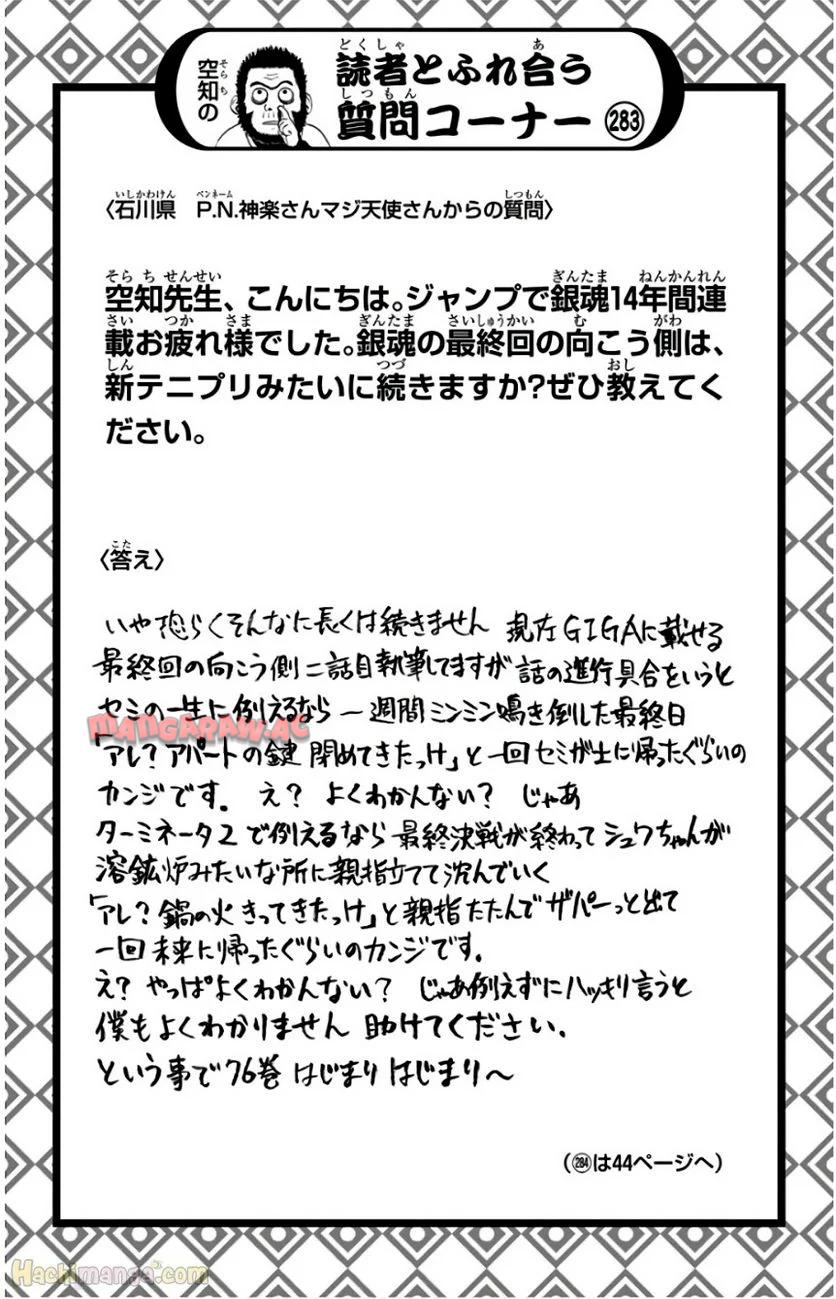 空知の
読者とふれ合う
質問コーナー 283
〈石川県　P.N.神楽さんマジ天使さんからの質問〉
空知先生、こんにちは。ジャンプで銀魂14年間連
載お疲れ様でした。銀魂の最終回の向こう側は、
新テニプリみたいに続きますか?ぜひ教えてく
ださい。
〈答え〉
いや恐らくそんなに長くは続きません 現在GIGAに載せる
最終回の向こう側二話目執筆してますが話の進行具合をいうと
セミの一生に例えるなら 一週間ミンミン鳴き倒した最終日
「アレ? アパートの鍵 閉めてきたっけ」と一回セミが土に帰ったぐらいの
カンジです。 え? よくわかんない? じゃあ
ターミネータ2 で例えるなら 最終決戦が終わって シュワちゃんが
溶鉱炉みたいな所に親指立てて沈んでいく
「アレ? 鍋の火きってきたっけ」と親指たたんでザパーっと出て
一回未来に帰ったぐらいのカンジです。
え? やっぱよくわかんない? じゃあ例えずにハッキリ言うと
僕もよくわかりません 助けてください.
という事で76巻 はじまり はじまり〜
(284は44ページへ)
MANGARAW.AC
Hachimanga.com